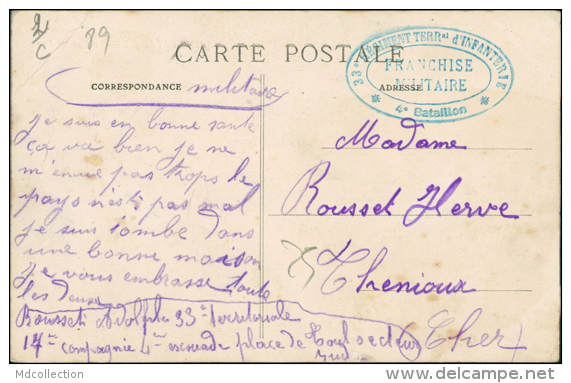 2/C
89
CARTE POSTALE
33e RÉGIMENT TERRal d'INFANTERIE
FRANCHISE
MILITAIRE
4e Bataillon
CORRESPONDANCE militaire
ADRESSE
je suis en bonne sante
ça va bien je ne
m'enue pas trops le
pays n'est pas mal
je suis tombe dans
une bonne maison
je vous embrasse toute
les deux
Rousset Adolphe 33e Territoriale
17e compagnie 4e escouade place de Toul secteur
sud
Madame
Rousset Herve
Thenioux
(Cher)
Mdcollection
delcampe.net